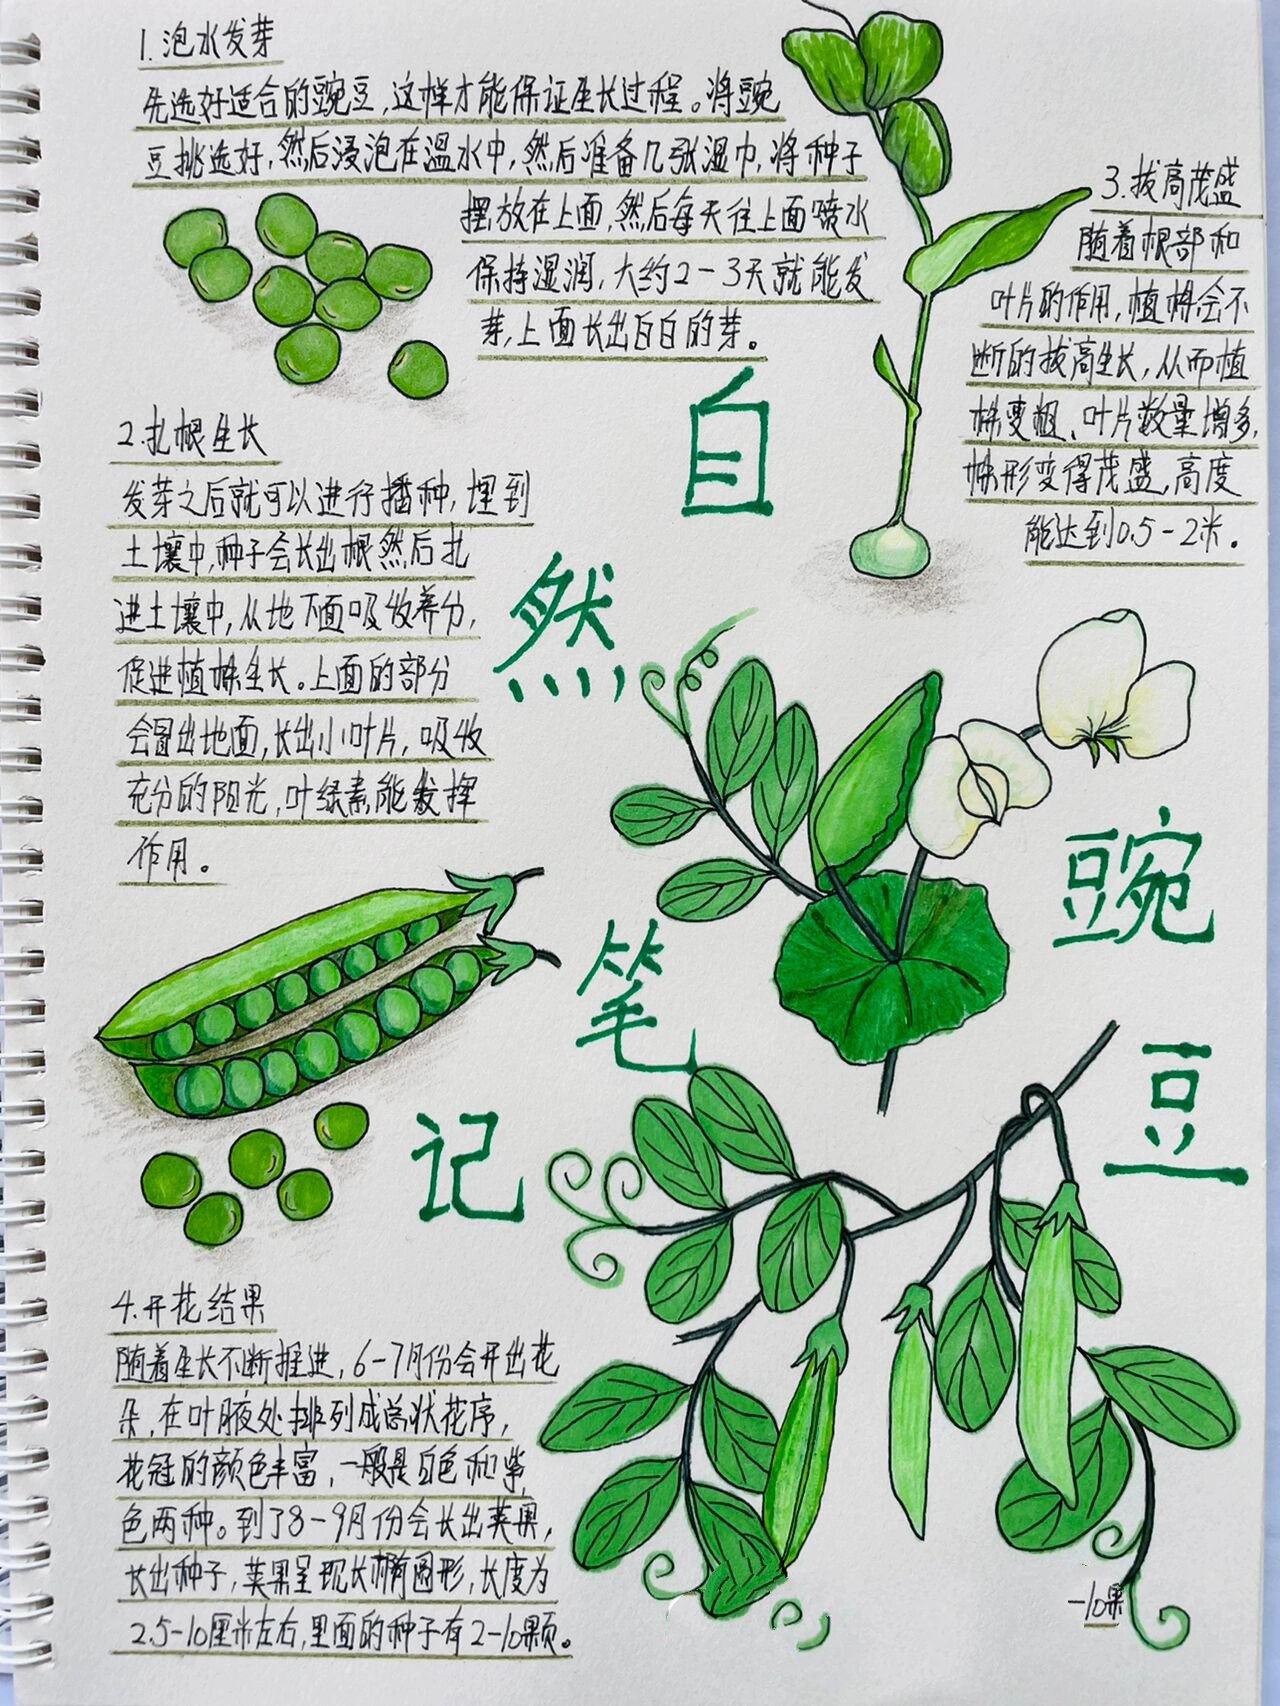 1.泡水发芽
先选好适合的豌豆,这样才能保证生长过程。将豌
豆挑选好,然后浸泡在温水中,然后准备几张湿巾,将种子
摆放在上面,然后每天往上面喷水
保持湿润,大约2-3天就能发
芽,上面长出白白的芽。
2.扎根生长
发芽之后就可以进行播种,埋到
土壤中,种子会长出根然后扎
进土壤中,从地下面吸收养分,
促进植株生长。上面的部分
会冒出地面,长出小叶片,吸收
充分的阳光,叶绿素能发挥
作用。
3.拔高茂盛
随着根部和
叶片的作用,植株会不
断的拔高生长,从而植
株变粗、叶片数量增多,
株形变得茂盛,高度
能达到0.5-2米。
自
然
笔
记
豌
豆
4.开花结果
随着生长不断推进,6-7月份会开出花
朵,在叶腋处排列成总状花序,
花冠的颜色丰富,一般是白色和紫
色两种。到了8-9月份会长出荚果,
长出种子,荚果呈现长椭圆形,长度为
2.5-10厘米左右,里面的种子有2-10颗。
-10果